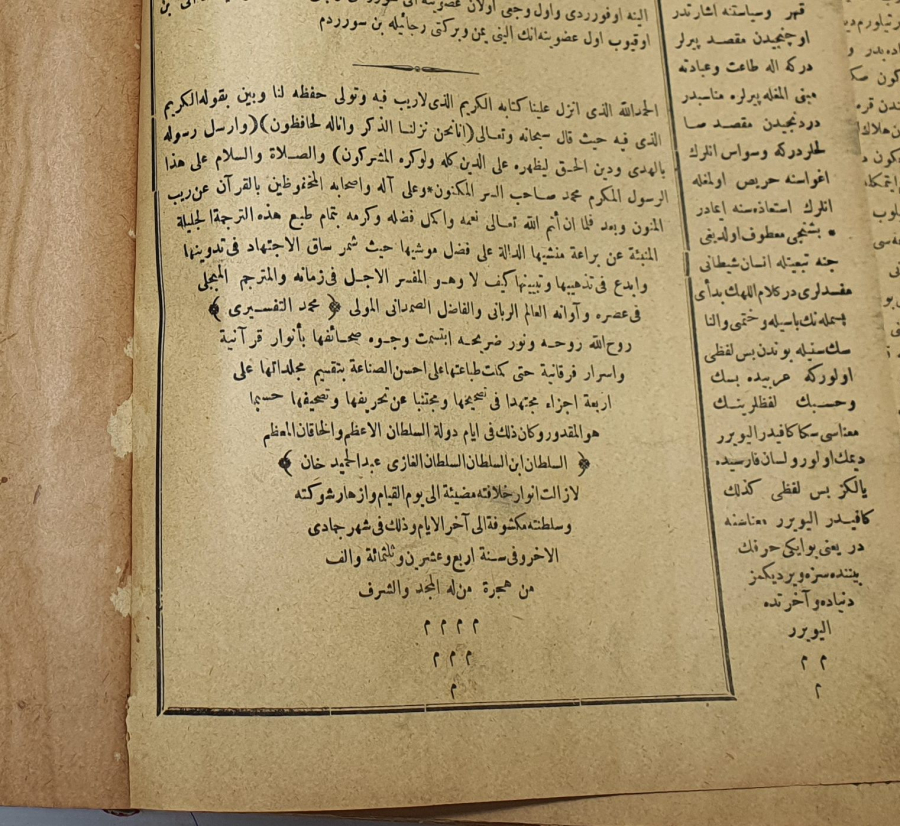 اوقيوب اول عضوينه انك الينى يمن وبركتى رجائيله بن سورردم
الحمدلله الذى انزل علينا كتابه الكريم الذى لاريب فيه وتولى حفظه لنا وبين بقوله الكريم
الذى فيه حيث قال سبحانه وتعالى (انانحن نزلنا الذكر واناله لحافظون) (وارسل رسوله
بالهدى ودين الحق ليظهره على الدين كله ولوكره المشركون) والصلاة والسلام على هذا
الرسول المكرم محمد صاحب السر المكنون * وعلى آله واصحابه المحفوظين بالقرآن عن ريب
المنون وبعد فلما ان أتم الله تعالى نعمه واكمل فضله وكرمه بتمام طبع هذه الترجمة الجليلة
المنبئة عن براعة منشيها الدالة على فضل موشيها حيث شمر ساق الاجتهاد فى تدوينها
وابدع فى تذهيبها وتبيينها كيف لا وهو المفسر الاجل فى زمانه والمترجم المبجلى
فى عصره وآوانه العالم الربانى والفاضل الصمدانى المولى ﴿ محمد التفسيرى ﴾
روح الله روحه ونور ضريحه ابتسمت وجوه صحائفها بأنوار قرآنية
واسرار فرقانية حتى كملت طباعتها على احسن الصناعة بتقسيم مجلداتها على
اربعة اجزاء مجتهدا فى تصحيحها ومجتنبا عن تحريفها وتصحيفها حسبما
هو المقدور وكان ذلك فى ايام دولة السلطان الاعظم والخاقان المعظم
﴿ السلطان ابن السلطان السلطان الغازى عبد الحميد خان ﴾
لازالت انوار خلافته مضيئة الى يوم القيام وازهار شوكته
وسلطنته مكشوفة الى آخر الايام وذلك فى شهر جمادى
الاخر وفى سنة اربع وعشرين وثلثمائة والف
من هجرة من له المجد والشرف
م م م م
م م م
م
قهر وسياستنه اشارتدر
اوچنجيدن مقصد پيرلر
دركه اله طاعت وعبادته
مبنى المغله پيرلره مناسبدر
دردنجيدن مقصد صا
لحلردركه وسواس انلرك
اغواسنه حريص اولمغله
انلرك استعاذه سنه ايمادر
* بشنجى معطوف اولديغى
جنه تبعيتله انسان شيطانى
مقدلرى در كلام اللهك بدأى
بسمله نك باسيله وختمى والنا
سك سنيله بوندن بس لفظى
اولور كه عربيده بسك
وحسبك لفظلرينك
معناسى سكا كافيدر اليويرر
ديمك اولور ولسان فارسيده
يالكز بس لفظى كذلك
كافيدر اليويرر معناسنه
در يعنى بو ايكى حرفك
بيننده سزه ويرديكمز
دنياده وآخرتده
اليويرر
م م
م